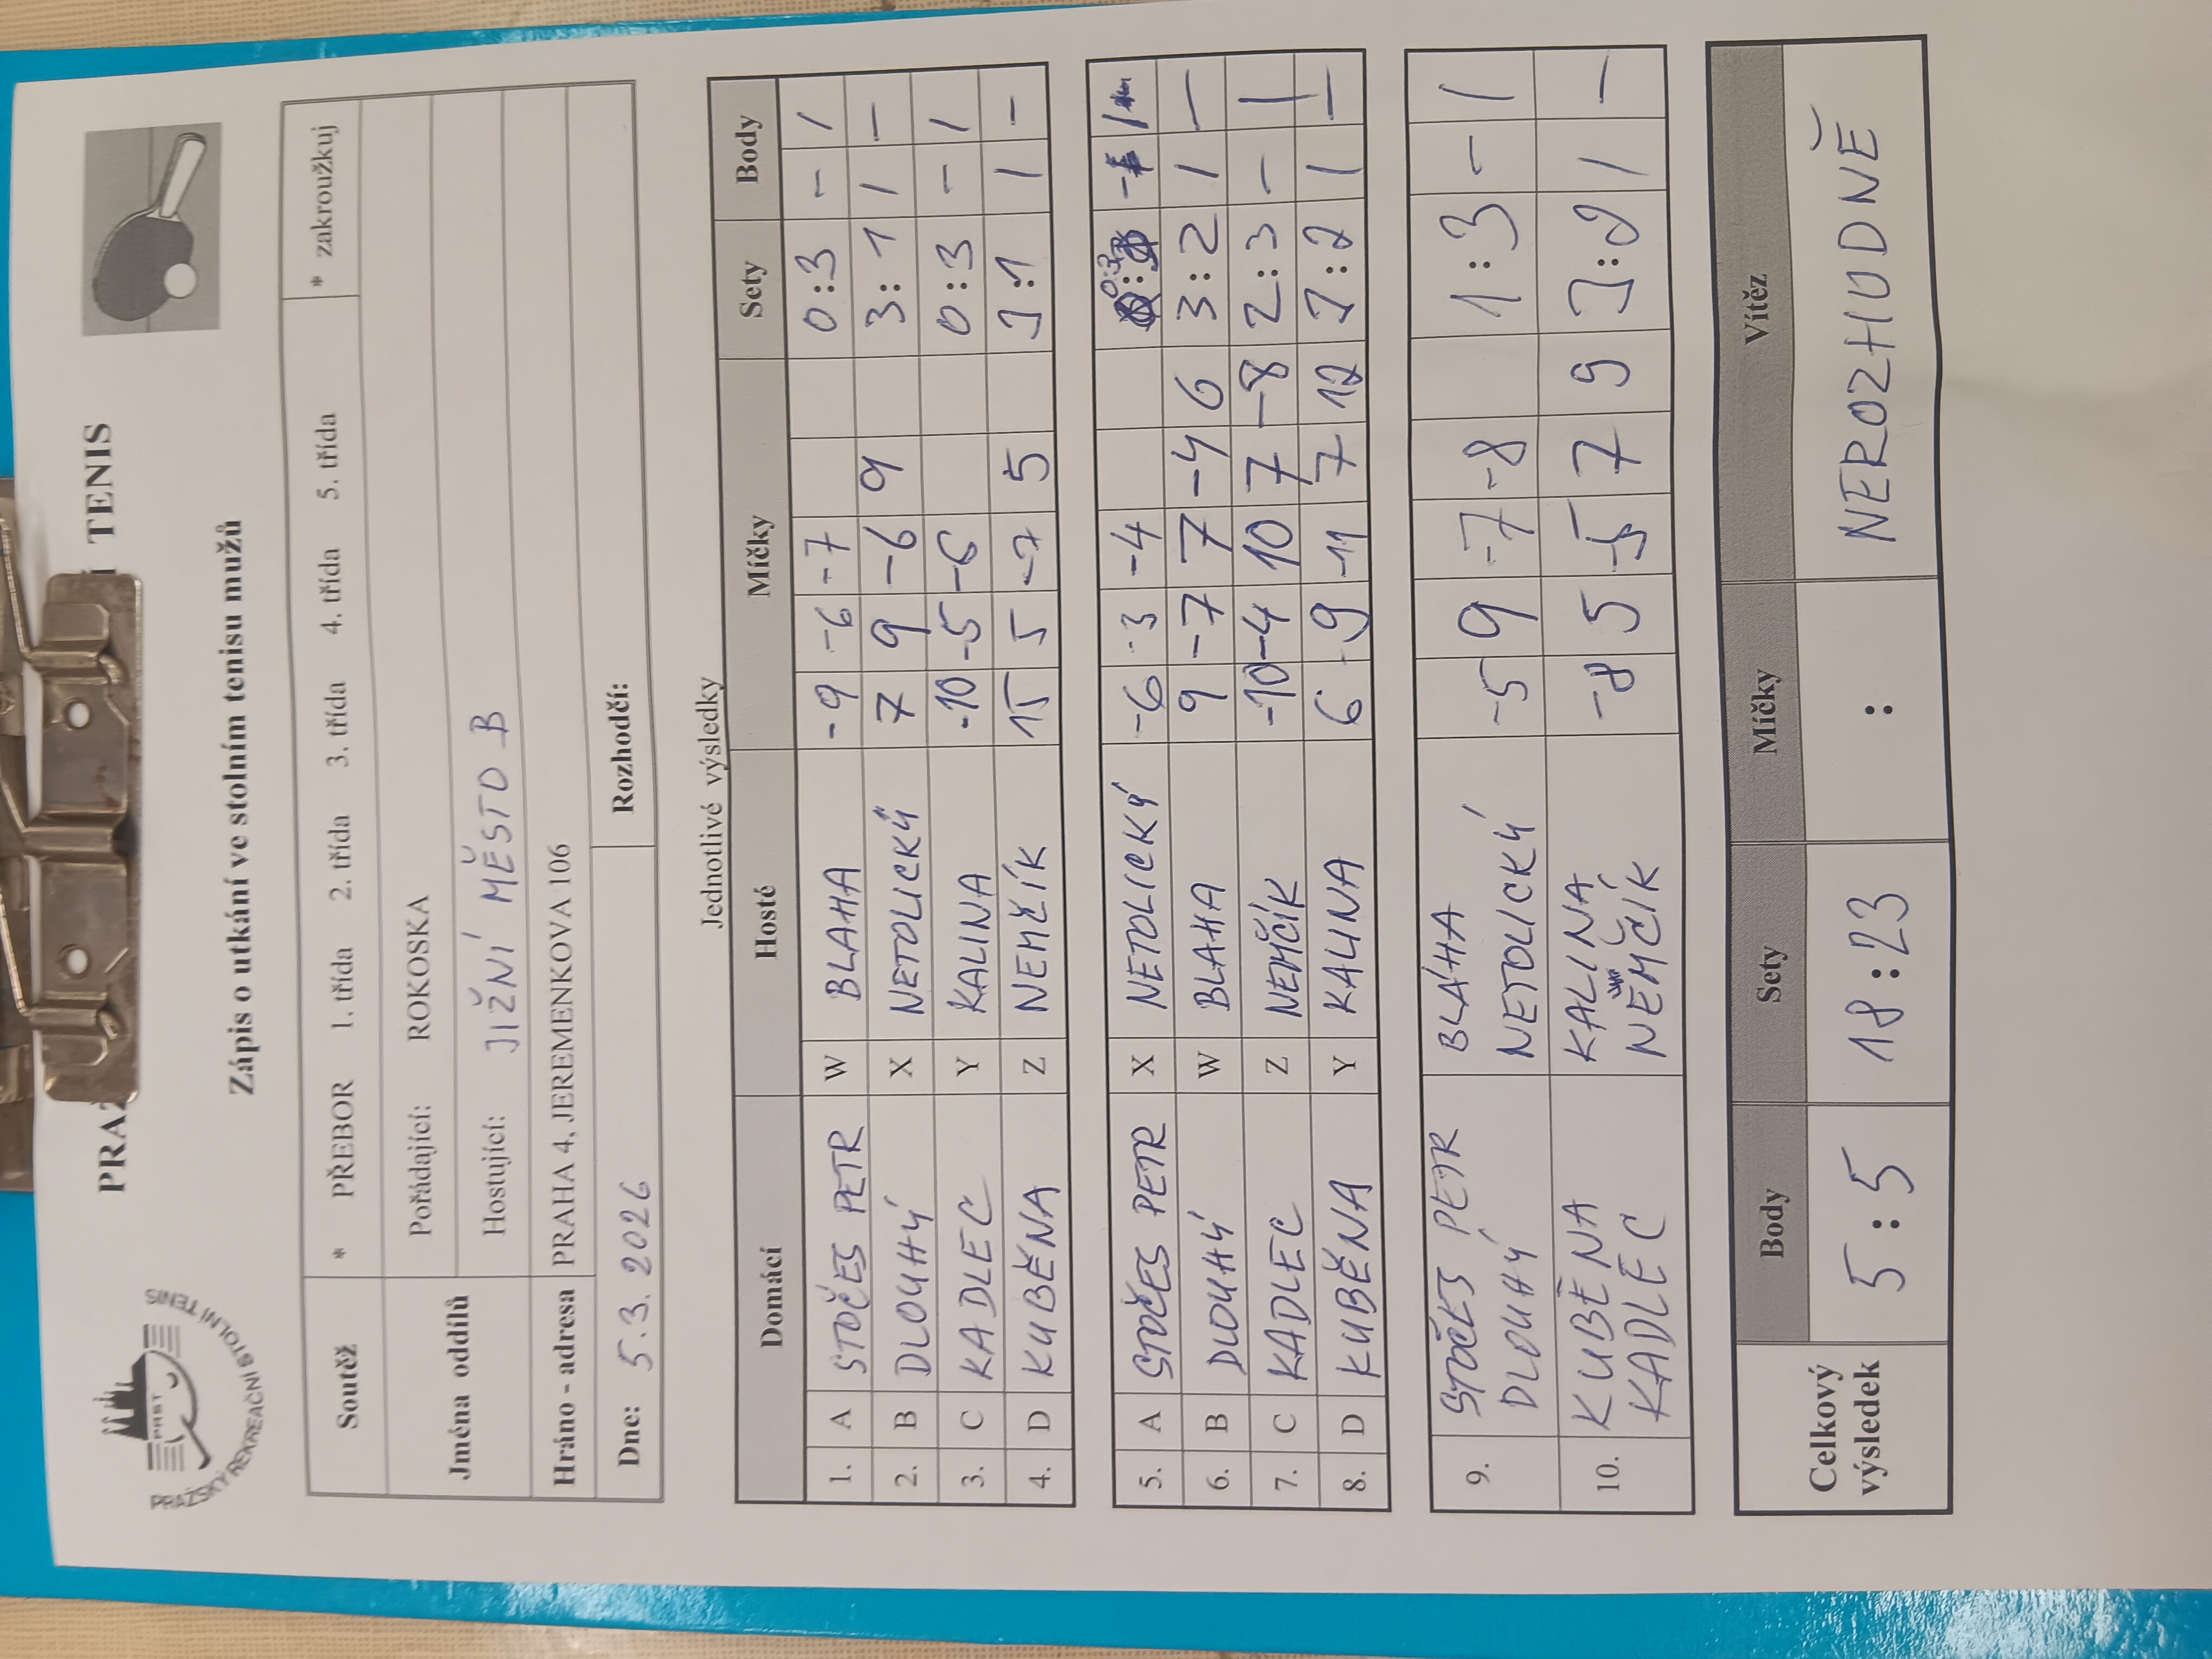 TENIS
Zápis o utkání ve stolním tenisu mužů
PRAŽSKÝ REKREAČNÍ STOLNÍ TENIS
PRST
Soutěž * PŘEBOR 1. třída 2. třída 3. třída 4. třída 5. třída * zakroužkuj
Jména oddílů Pořádající: ROKOSKA
Hostující: JIŽNÍ MĚSTO B
Hráno - adresa PRAHA 4, JEREMENKOVA 106
Dne: 5.3.2026 Rozhodčí:
Jednotlivé výsledky
Domácí Hosté Míčky Sety Body
1. A STOČES PETR W BLAHA -9 -6 -7 0:3 - 1
2. B DLOUHÝ X NETOLICKÝ 7 9 -6 9 3:1 1 -
3. C KADLEC Y KALINA -10 -5 -6 0:3 - 1
4. D KUBĚNA Z NEMČÍK 15 5 -7 5 3:1 1 -
5. A STOČES PETR X NETOLICKÝ -6 -3 -4 0:3 - 1
6. B DLOUHÝ W BLAHA 9 -7 7 -4 6 3:2 1 -
7. C KADLEC Z NEMČÍK -10 -4 10 7 -8 2:3 - 1
8. D KUBĚNA Y KALINA 6 -9 -11 7 12 3:2 1 -
9. STOČES PETR BLÁHA -5 9 -7 -8 1:3 - 1
DLOUHÝ NETOLICKÝ
10. KUBĚNA KALINA -8 5 -5 7 9 3:2 1 -
KADLEC NĚMČÍK
Celkový výsledek Body Sety Míčky Vítěz
5:5 18:23 : NEROZHODNĚ